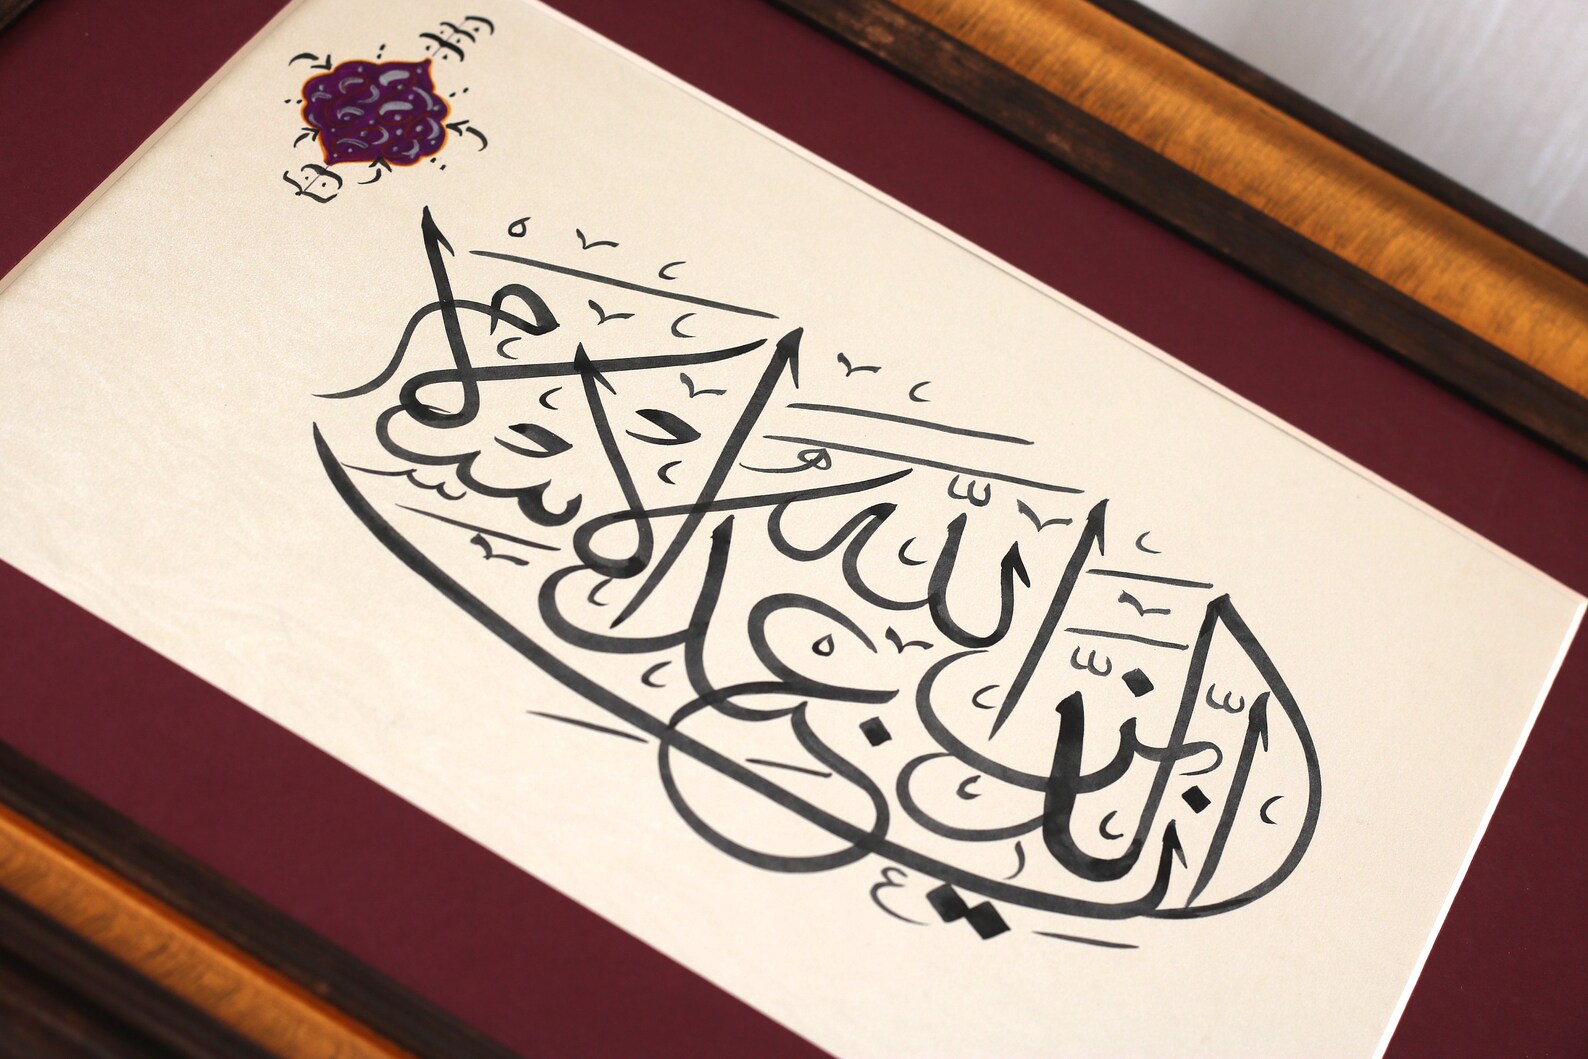 إِنَّ الدِّينَ عِنْدَ اللَّهِ الْإِسْلَامُ